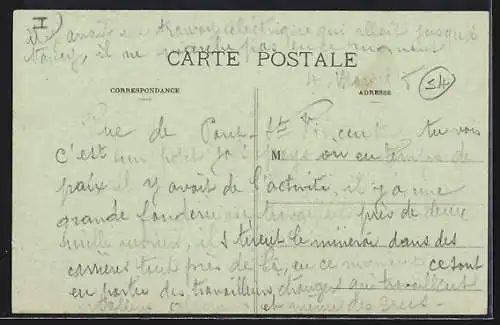 I
il y avait un tramway électrique qui allait jusqu'à
Nancy, il ne marche pas en ce moment
CARTE POSTALE
4
54
CORRESPONDANCE
ADRESSE
Vue de Pont St Vincent tu vois
c'est un petit M ou en temps de
paix il y avait de l'activité, il y a une
grande fonderie près de deux
mille ouvriers, ils tirent le minerai dans des
carrières tout près de là, en ce moment ce sont
en partie des travailleurs étrangers qui travaillent
et même des